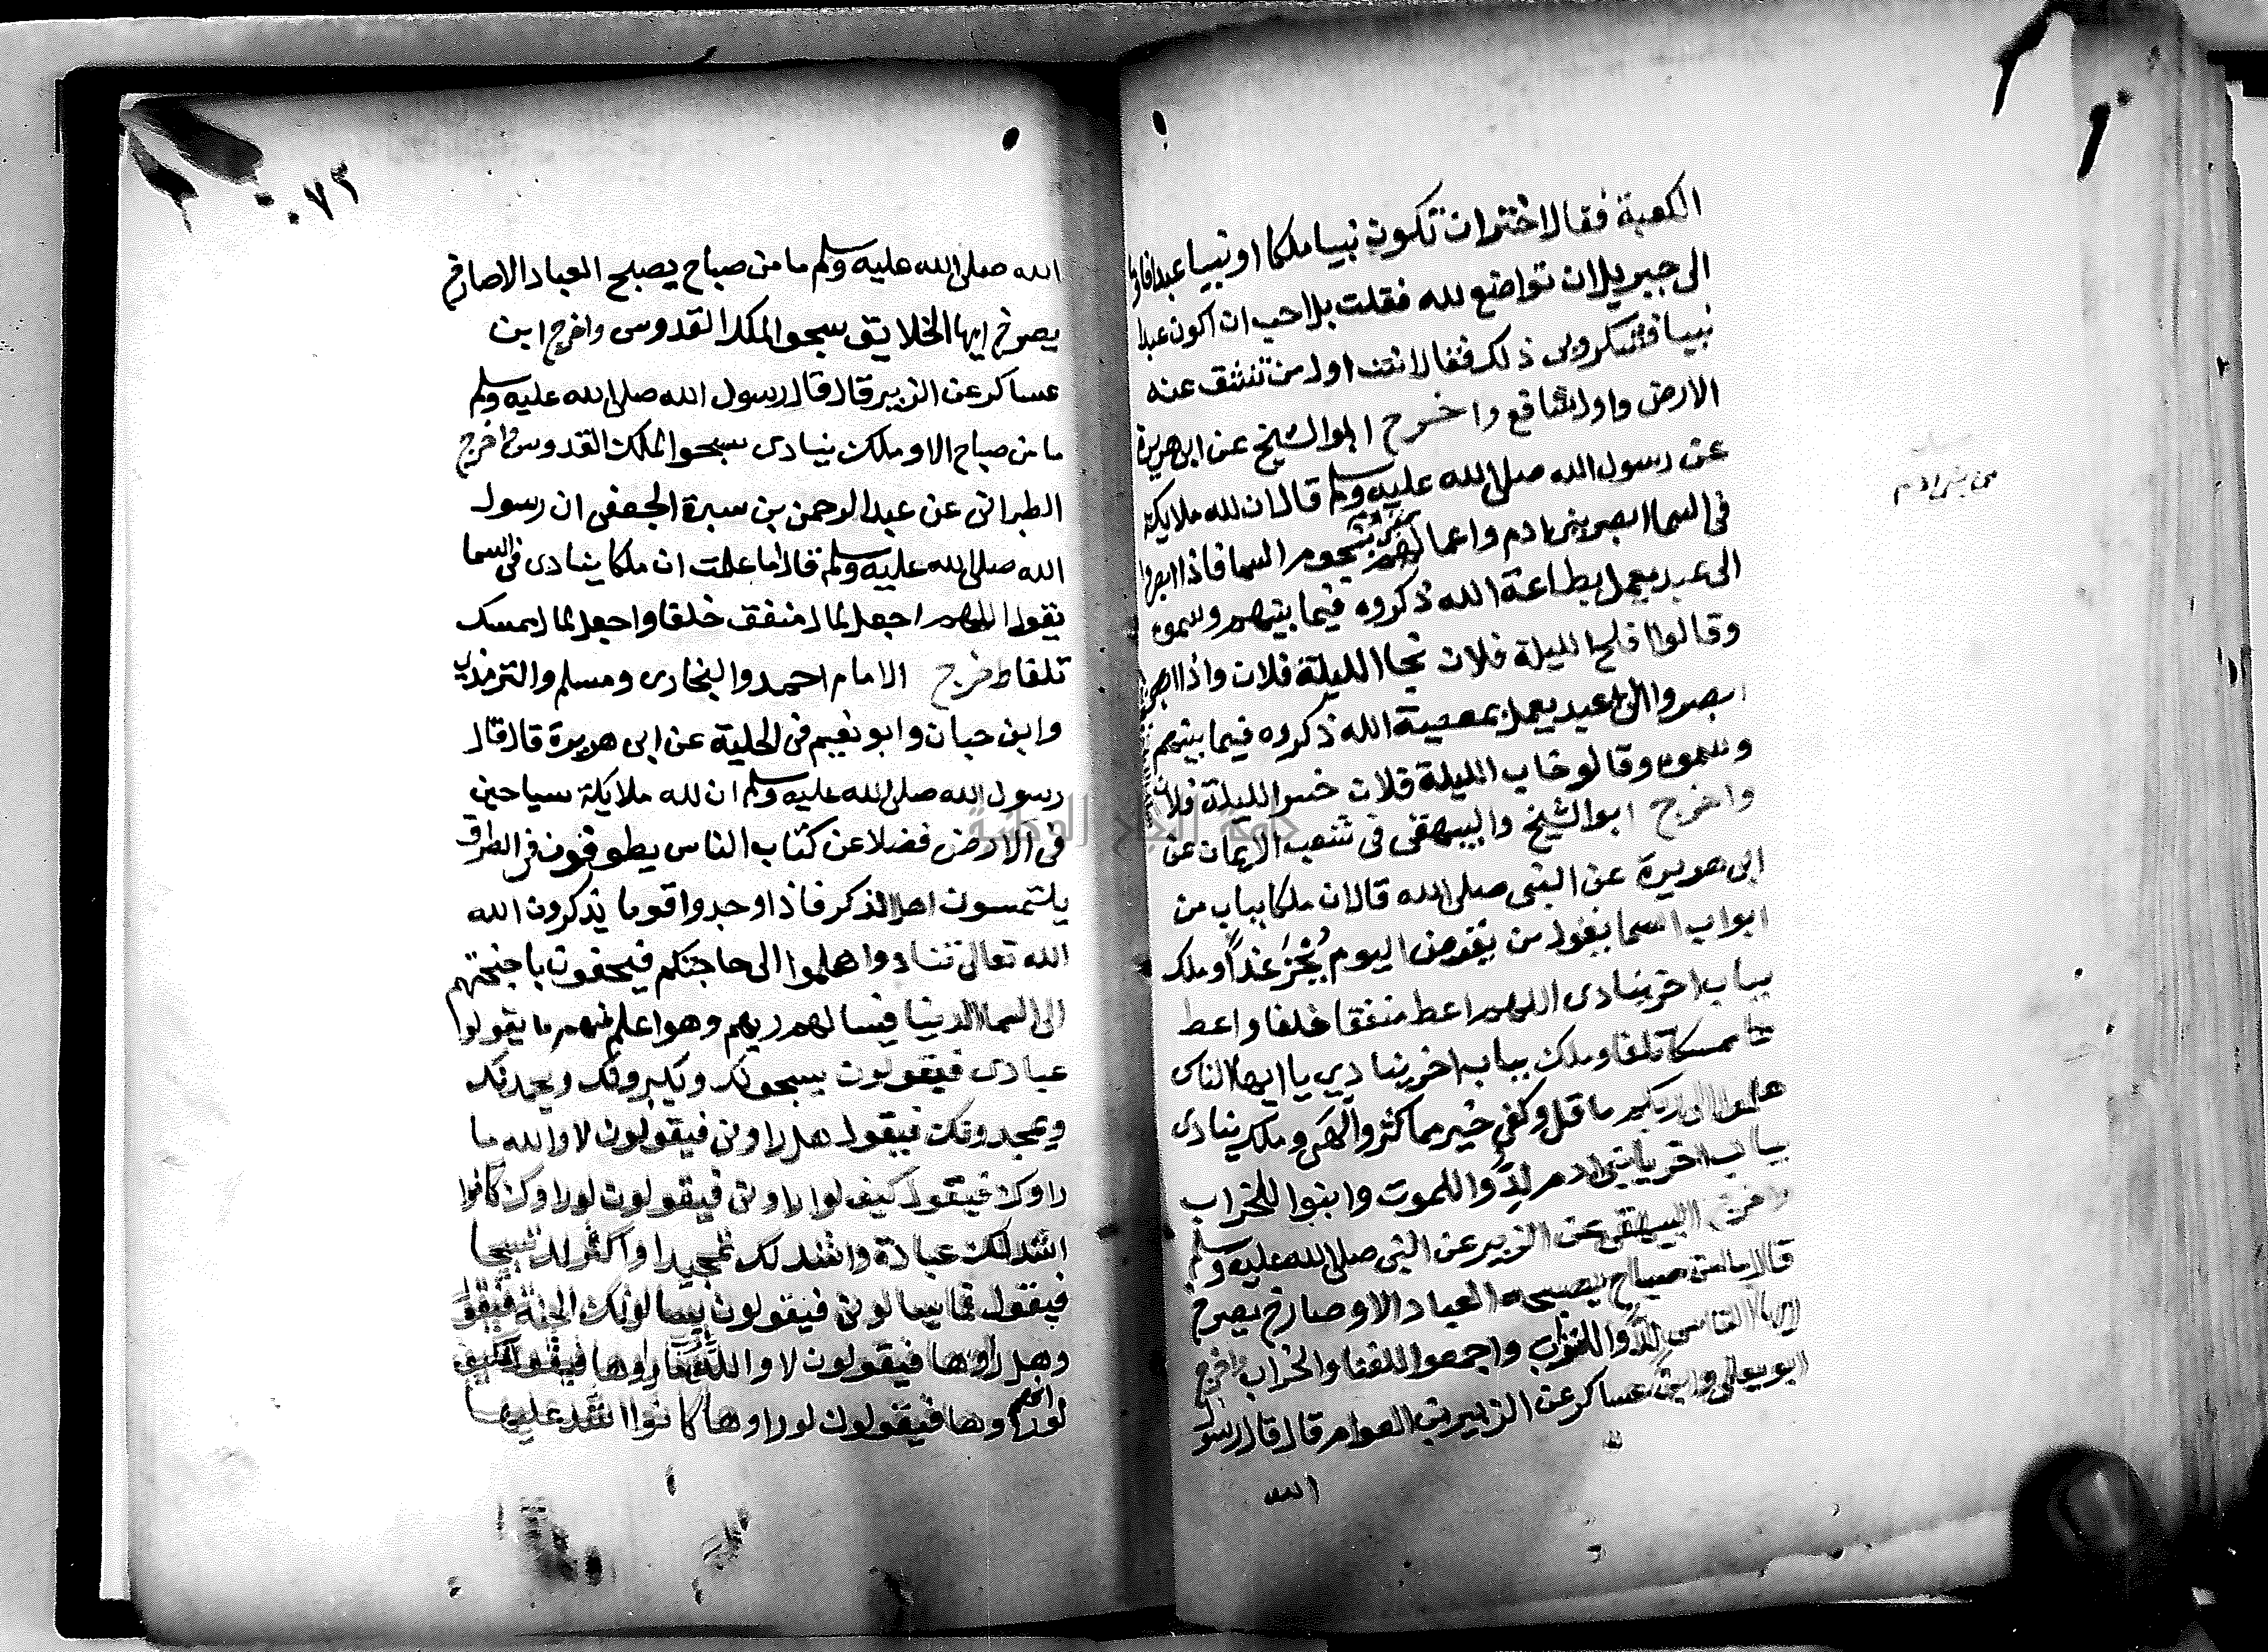 الكعبة فقال اختر ان تكون نبيا ملكا او نبيا عبدا فاوما
الى جبريل ان تواضع لله فقلت بل احب ان اكون عبدا
نبيا فشكر ربي ذلك فقال انت اول من تنشق عنه
الارض واول شافع واخرج ابو الشيخ عن ابى هريرة
عن رسول الله صلى الله عليه وسلم قال ان لله ملايكة
فى السما ابصر ببنى ادم واعمالهم بنجوم السما فاذا ابصروا
الى عبد يعمل بطاعة الله ذكروه فيما بينهم وسموه
وقالوا افلح الليلة فلان نجا الليلة فلان واذا
ابصروا الى عبد يعمل بمعصية الله ذكروه فيما بينهم
وسموه وقالو خاب الليلة فلان خسر الليلة فلان
واخرج ابو الشيخ والبيهقى فى شعب الايمان عن
ابى هريرة عن النبى صلى الله قال ان ملكا بباب من
ابواب السما يقول من يقرض اليوم يُجْزَ غداً وملك
بباب اخر ينادى اللهم اعط منفقا خلفا واعط
ممسكا تلفا وملك بباب اخر ينادي يا ايها الناس
هلموا الى ربكم ما قل وكفى خير مما كثر والهى وملك ينادى
بباب اخر يا بنى ادم لِدُوا للموت وابنوا للخراب
واخرج البيهقى عن الزبير عن النبى صلى الله عليه وسلم
قال ما من صباح يصبحه العباد الا وصارخ يصرخ
ايها الناس لدُوا للتراب واجمعوا للفنا والخراب واخرج
ابو يعلى وابن عساكر عن الزبير بن العوام قال قال رسول
الله
من بنى ادم
٧٣
الله صلى الله عليه وسلم ما من صباح يصبح العباد الا صارخ
يصرخ ايها الخلايق سبحوا الملك القدوس واخرج ابن
عساكر عن الزبير قال قال رسول الله صلى الله عليه وسلم
ما من صباح الا وملك ينادى سبحوا الملك القدوس واخرج
الطبرانى عن عبد الرحمن بن سبرة الجعفى ان رسول
الله صلى الله عليه وسلم قال اما علمت ان ملكا ينادى فى السما
يقول اللهم اجعل لمال منفق خلفا واجعل لمال ممسك
تلفا واخرج الامام احمد والبخارى ومسلم والترمذي
وابن حبان وابو نعيم فى الحلية عن ابى هريرة قال قال
رسول الله صلى الله عليه وسلم ان لله ملايكة سياحين
فى الارض فضلا عن كتاب الناس يطوفون فى الطرق
يلتمسون اهل الذكر فاذا وجدوا قوما يذكرون الله
الله تعالى تنادوا هلموا الى حاجتكم فيحفون باجنحتهم
الى السما الدنيا فيسالهم ربهم وهو اعلم منهم ما يقولوا
عبادى فيقولون يسبحونك ويكبرونك ويحمدنك
ويمجدونك فيقول هل راونى فيقولون لا والله ما
راوك فيقول كيف لو راونى فيقولون لو راوك كانوا
اشد لك عبادة واشد لك تمجيدا واكثر لك تسبيحا
فيقول فما يسالونى فيقولون يسالونك الجنة فيقول
وهل راوها فيقولون لا والله ما راوها فيقول فكيف
لو انهم راوها فيقولون لو راوها كانوا اشد عليها